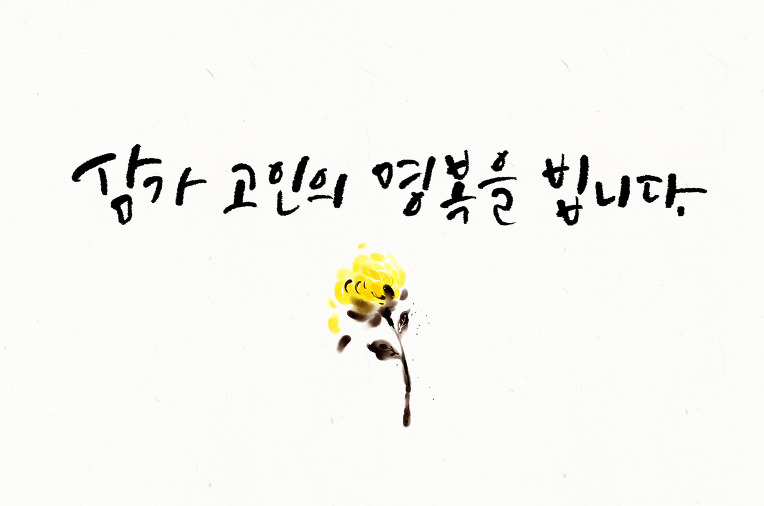 삼가 고인의 명복을 빕니다.